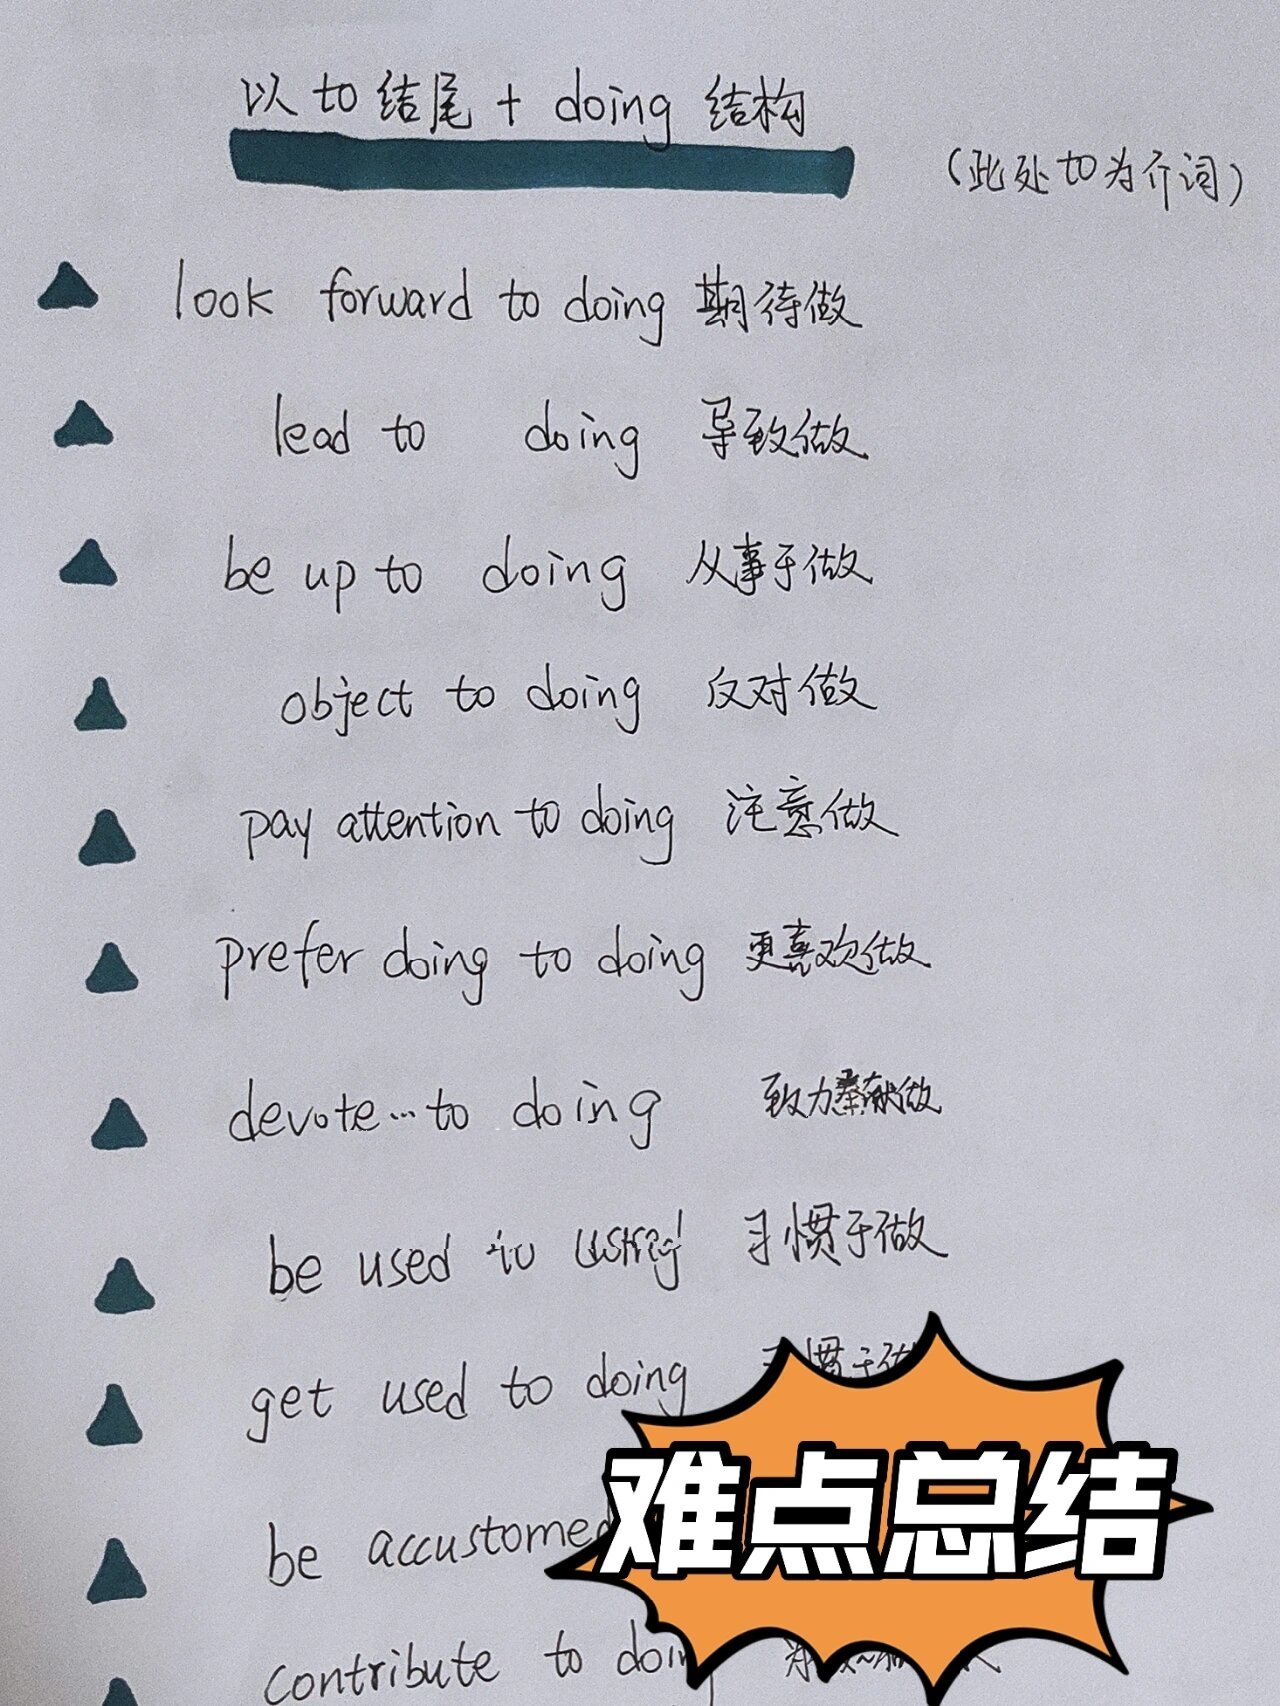 以to结尾 + doing 结构
(此处to为介词)
look forward to doing 期待做
lead to doing 导致做
be up to doing 从事于做
object to doing 反对做
pay attention to doing 注意做
prefer doing to doing 更喜欢做
devote...to doing 致力奉献做
be used to using 习惯于做
get used to doing 习惯于做
be accustomed
难点总结
contribute to doing